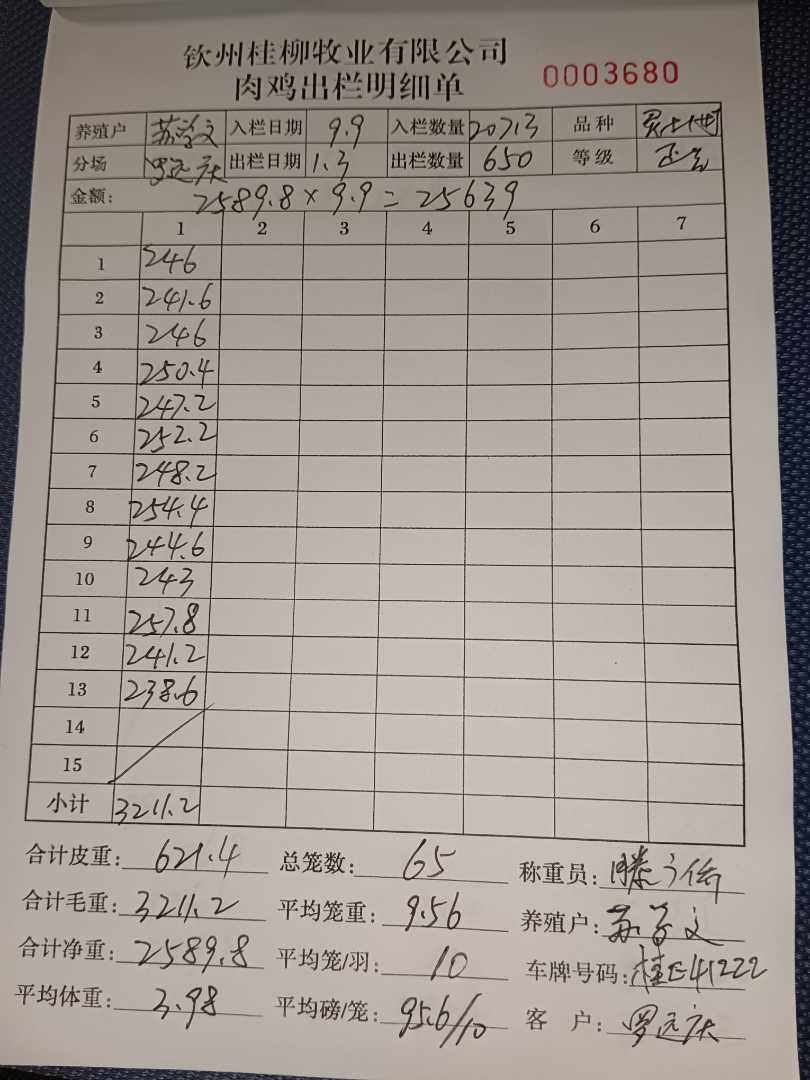 钦州桂柳牧业有限公司
肉鸡出栏明细单 0003680
养殖户 苏学文 入栏日期 9.9 入栏数量 20713 品种
分场 罗远庆 出栏日期 1.3 出栏数量 650 等级
金额: 2589.8×9.9=25639
1 2 3 4 5 6 7
1 246
2 241.6
3 246
4 250.4
5 247.2
6 252.2
7 248.2
8 254.4
9 244.6
10 243
11 257.8
12 241.2
13 238.6
14
15
小计 3211.2
合计皮重: 621.4 总笼数: 65 称重员:
合计毛重: 3211.2 平均笼重: 9.56 养殖户: 苏学文
合计净重: 2589.8 平均笼/羽: 10 车牌号码: 桂E41222
平均体重: 3.98 平均磅/笼: 95.6/10 客户: 罗远庆